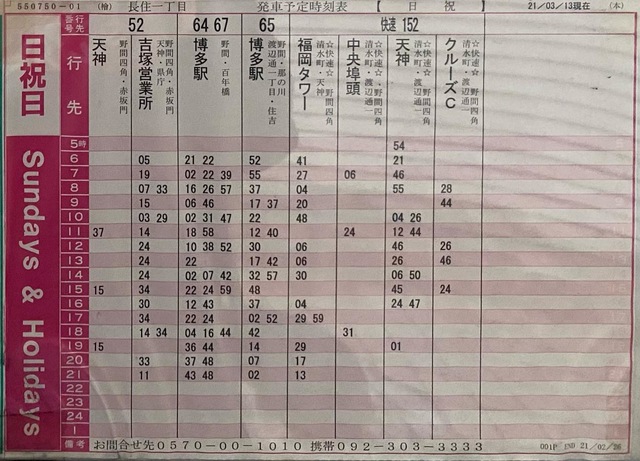 550750-01 (桧) 長住一丁目 発車予定時刻表 【 日 祝 】 21/03/13現在 (水)
日祝日
Sundays & Holidays
番号 行先 52 64 67 65 快速 152
行先
天神 野間四角・赤坂門
吉塚営業所 野間四角・赤坂門 天神・県庁
博多駅 野間・百年橋
博多駅 野間・那の川 渡辺通一丁目・住吉
福岡タワー ☆快速☆ 野間四角 清水町・天神
中央埠頭 ☆快速☆ 野間四角 清水町・渡辺通一
天神 ☆快速☆ 野間四角 清水町・渡辺通一
クルーズC ☆快速☆ 野間四角 清水町・渡辺通一
5時 54
6 05 21 22 52 41 21
7 19 02 22 39 55 27 06 46
8 07 33 16 26 57 37 04 55 28
9 15 06 46 17 37 20 44
10 03 29 02 31 47 22 48 04 26
11 37 14 18 58 12 40 24 12 44
12 24 10 38 52 30 06 46 26
13 24 22 17 42 06 26 46
14 24 02 07 42 32 57 30 06 50
15 15 34 22 24 59 48 45 24
16 30 12 43 37 04 24 47
17 34 22 24 02 52 29 59
18 14 34 04 16 44 42 31
19 15 36 44 14 29 01
20 33 37 48 07 17
21 11 43 48 02 13
22
23
24
1
備考 お問合せ先0570-00-1010 携帯092-303-3333 001P END 21/02/26